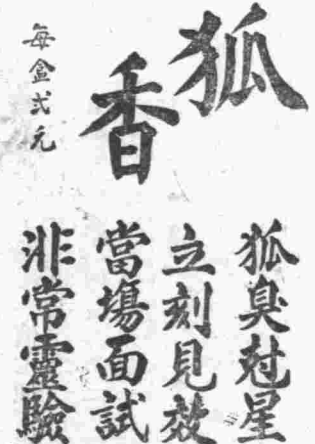 狐香
每盒弍元
狐臭尅星
立刻見效
當塲面試
非常靈驗